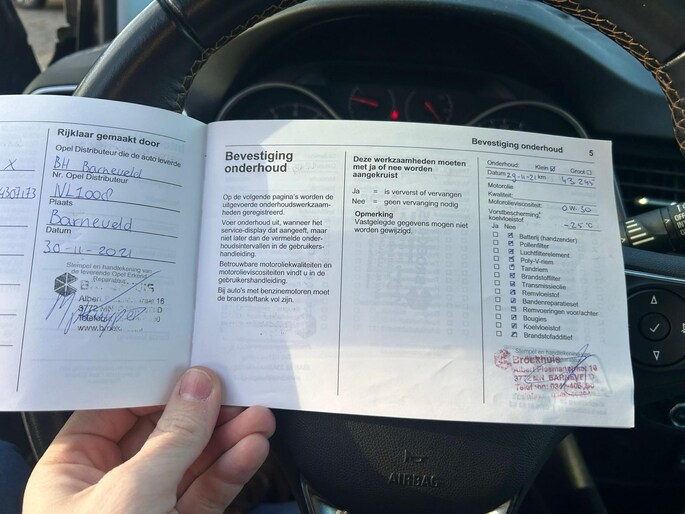 Rijklaar gemaakt door
Opel Distributeur die de auto leverde
BH Barneveld
Nr. Opel Distributeur
Plaats
Barneveld
Datum
30-11-2021
Stempel en handtekening van
Bevestiging
onderhoud
Op de volgende pagina's worden de
uitgevoerde onderhoudswerkzaam-
heden geregistreerd.
Voer onderhoud uit, wanneer het
service-display dat aangeeft, maar
niet later dan de vermelde onder-
houdsintervallen in de gebruikers-
handleiding.
Betrouwbare motoroliekwaliteiten en
motorolieviscositeiten vindt u in de
gebruikershandleiding.
Bij auto's met benzinemotoren moet
de brandstoftank vol zijn.
Deze werkzaamheden moeten
met ja of nee worden
aangekruist
Ja = is ververst of vervangen
Nee = geen vervanging nodig
Opmerking
Vastgelegde gegevens mogen niet
worden gewijzigd.
Bevestiging onderhoud 5
Onderhoud: Klein Groot
Datum 29-11-21 km
Motorolie
Kwaliteit:
Motorolieviscositeit: 0W-30
Vorstbescherming
koelvloeistof -35°C
Ja Nee
Batterij (handzender)
Pollenfilter
Luchtfilterelement
Poly-V-riem
Tandriem
Brandstoffilter
Transmissieolie
Remvloeistof
Bandenreparatieset
Remvoeringen voor/achter
Bougies
Koelvloeistof
Brandstofadditief
Stempel en handtekening
Broekhuis
AIRBAG
OFF